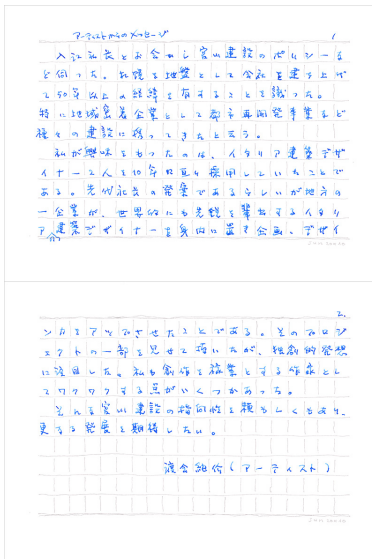 アーティストからのメッセージ
1
入江社長とお会いし宮い建設のポリシーな
ど伺った。 を地盤として会社を建て上げ
て50年以上の経緯を有することを識った。
特に地域密着企業として都市再開発事業など
種々の建設に携ってきたと云う。
私が興味をもったのは、イタリア建築デザ
イナー2人を10年 採用していたことで
ある。先代社長の発案であるらしいが地方の
一企業が、世界的にも先鋭を輩出するイタリ
ア建築デザイナーを身内に置き企画、デザイ
2.
ン力をアップさせたことである。そのプロジ
ェクトの一部を見せて頂いたが、独創的発想
に注目した。私も創作を稼業とする作家とし
てワクワクする点がいくつかあった。
そんな宮い建設の指向性を頼もしくもあり、
更なる発展を期待したい。
渡会純价(アーティスト)